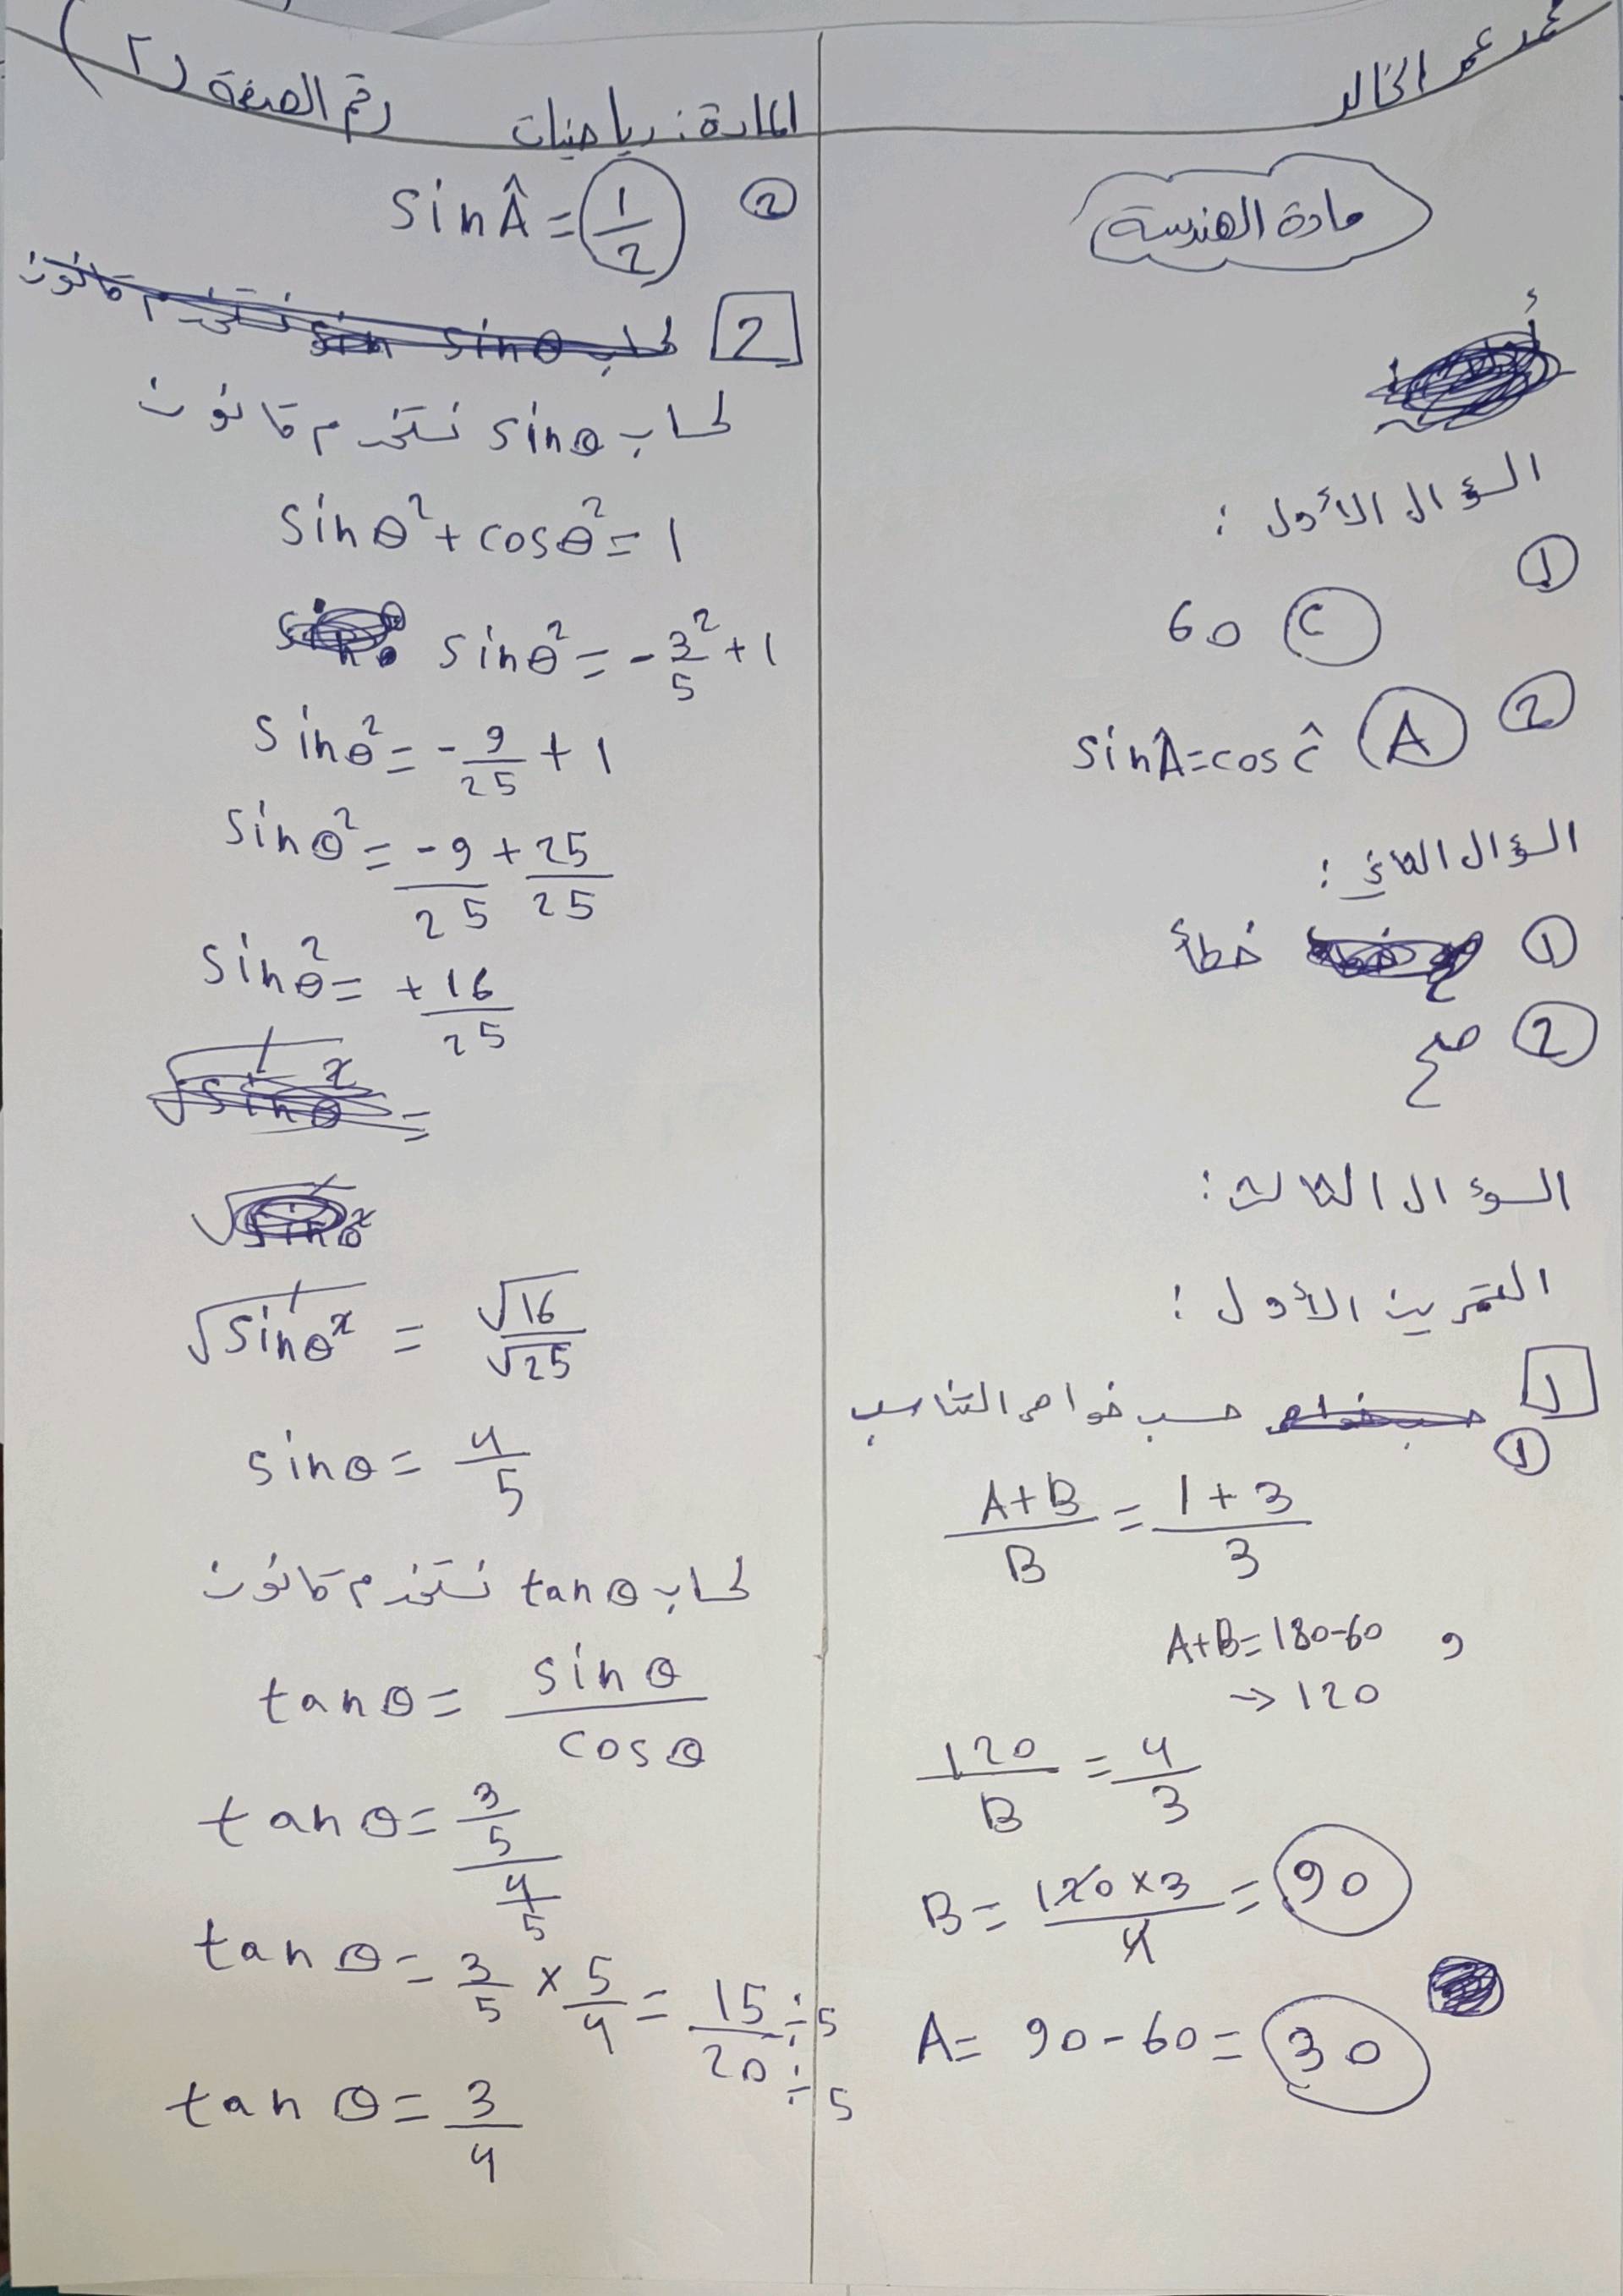 محمد عمر الخالد
المادة: رياضيات
رقم الصفحة (٢)
مادة الهندسة
السؤال الأول:
1
60 C
2
sinÂ=cosĉ A
السؤال الثاني:
1 خطأ
2 صح
السوءال الثالث:
التمرين الأول:
1
1 حسب خواص التناسب
A+B/B = 1+3/3
و A+B=180-60
→ 120
120/B = 4/3
B= 120×3/4 = 90
A= 90-60= 30
2 sinÂ = 1/2
2
لحساب sinθ نستخدم قانون
sinθ²+cosθ²=1
sinθ²= -3²/5+1
sinθ²= -9/25+1
sinθ²= -9/25+25/25
sinθ²= +16/25
√sinθ² = √16/√25
sinθ= 4/5
لحساب tanθ نستخدم قانون
tanθ= sinθ/cosθ
tanθ= 3/5 / 4/5
tanθ= 3/5 × 5/4 = 15÷5/20÷5
tanθ= 3/4